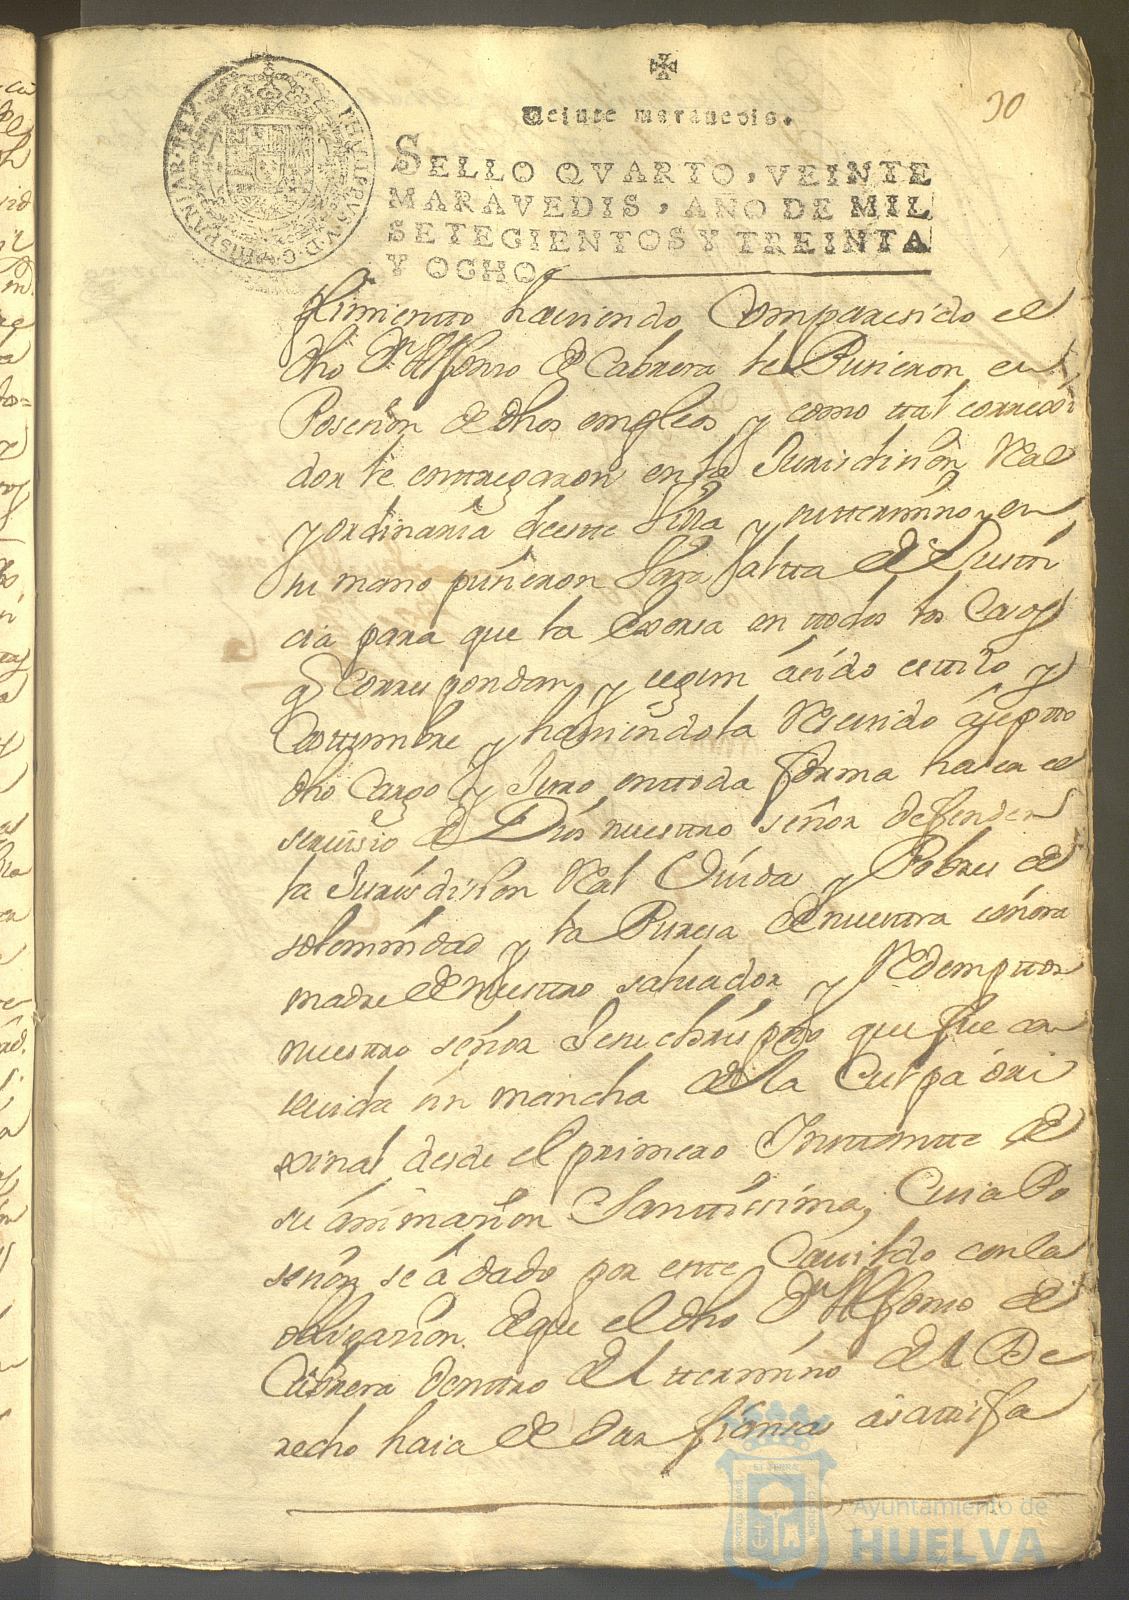 30
Veinte maravedis.
SELLO QVARTO, VEINTE
MARAVEDIS, AÑO DE MIL
SETECIENTOS Y TREINTA
Y OCHO
PHILIPPVS · V · D · G · HISPANIAR · REX
plimientto haviendo Comparesido el
dho Dn Alfonso de Cabrera le Pusieron en
Poseson de dhos empleos y como ttal correxi
dor le enttregaron en la Jurisdision Real
y ordinaria de estte Villa y su ttermino, en
su mano pusieron Vara altta de Justti
cia para que la exersa en ttodos los Casos
q Correspondan, y segun a sido esttilo y
Costtumbre y haviendola Resevido aseptto
dho Cargo y Juro en ttoda forma haser el
servisio de Dios nuesttro señor defender
la Jurisdision Real Viuda y Pobres de
solemnidad y la Puresa de nuesttra señora
madre de nuesttro salvador y Redempttor
nuesttro señor Jesuchristto que fue con
sevida sin mancha de la Culpa ori
xinal desde el primero Insttantte de
su animasion Santtissima, Cuia Po
sesion se a dado por estte Cavildo con la
obligasion de que el dho Dn Alfonso de
Cabrera dentro del ttermino del De
recho haia de dar fiansas a sattisfa
Ayuntamiento de
HUELVA